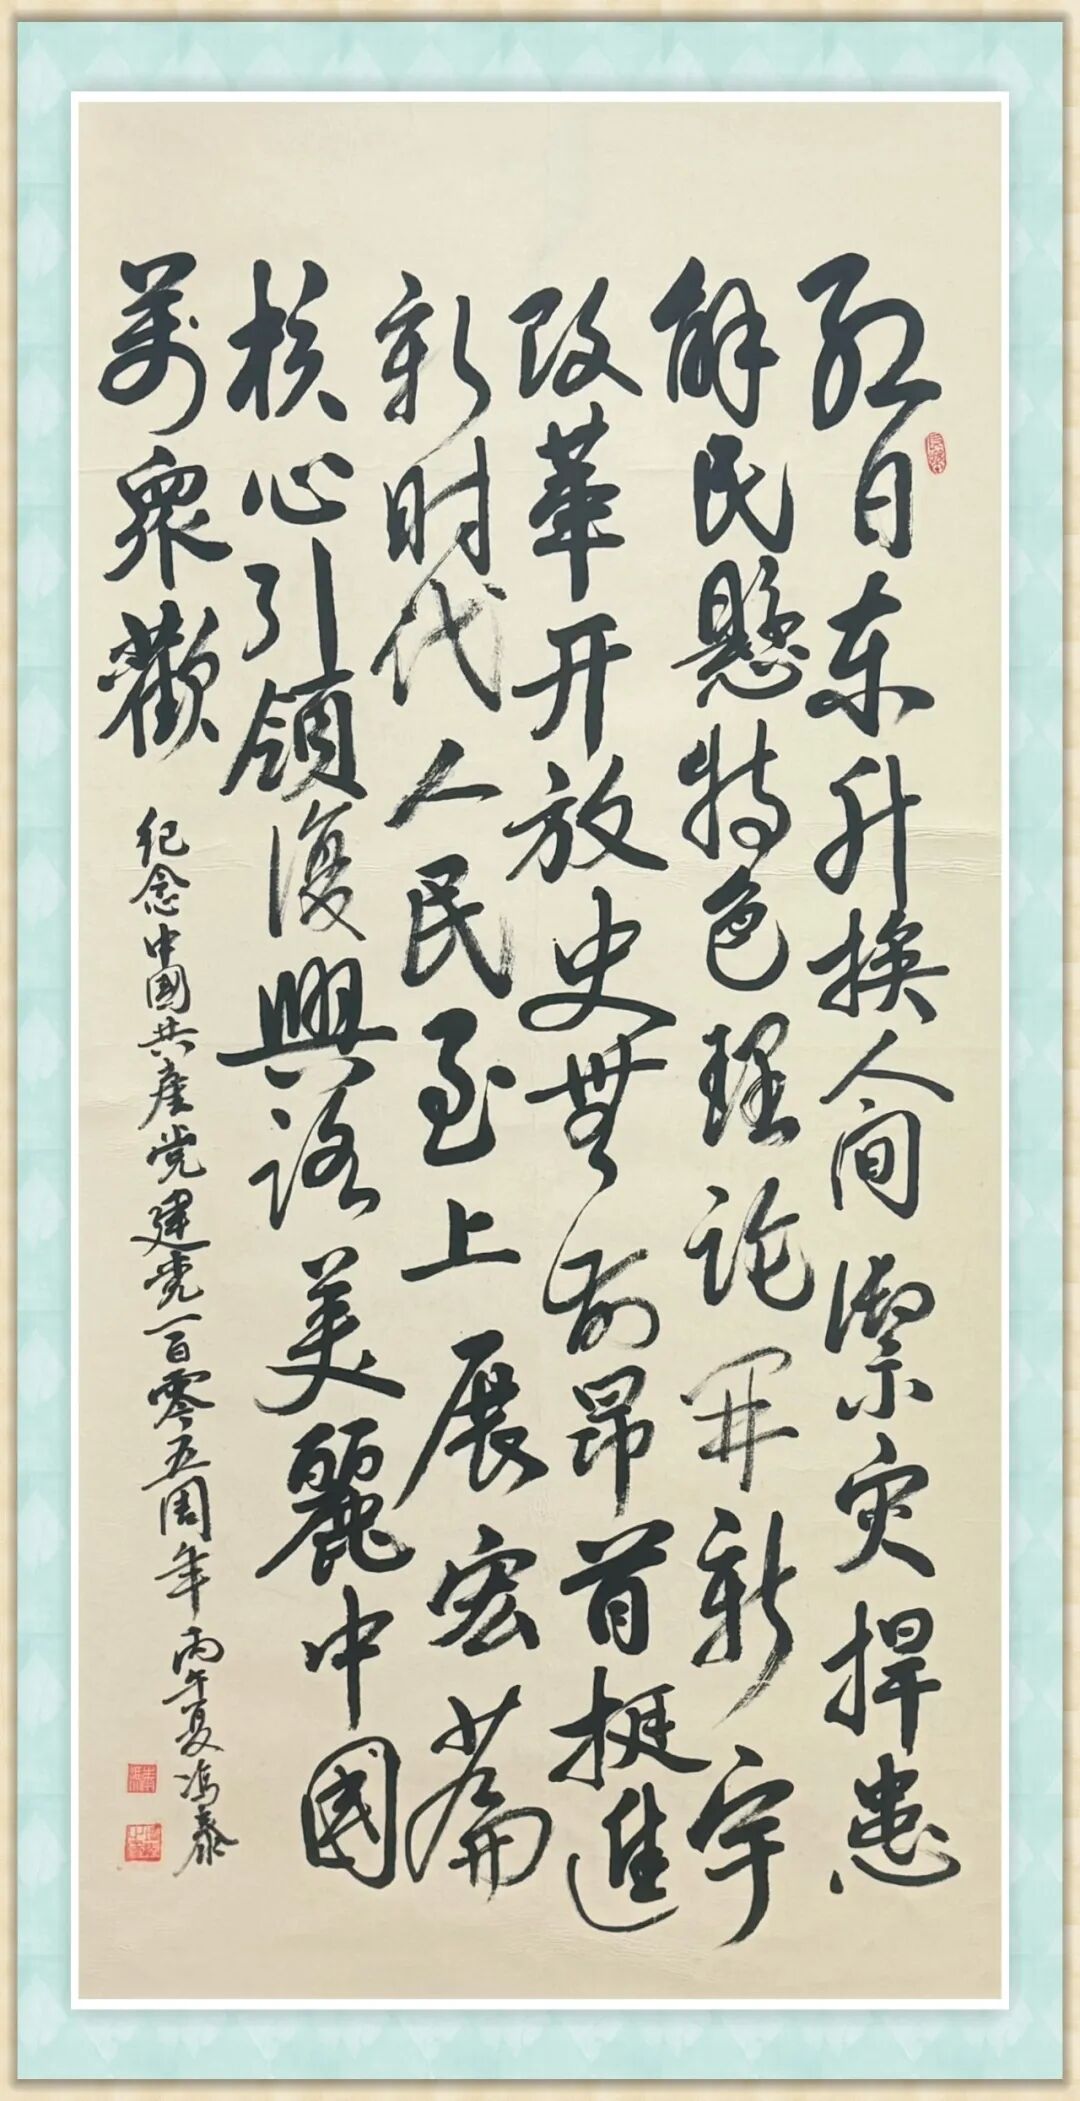 红日东升换人间御灾捍患
解民懸特色理论开新宇
改革开放史無前昂首挺進
新时代人民至上展宏篇
核心引領復興路美麗中國
萬眾歡
纪念中國共産党建党一百零五周年丙午夏冯泰